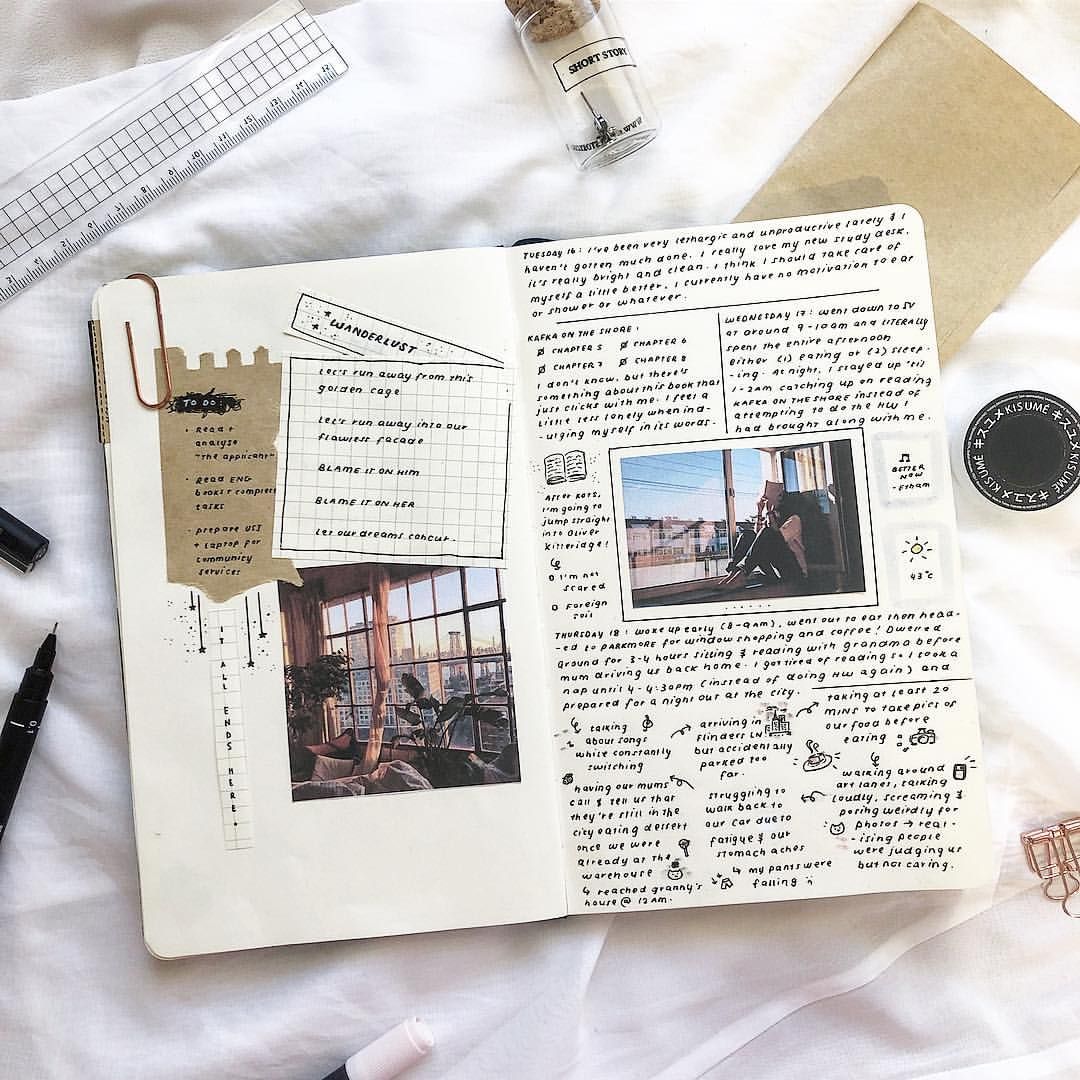 SHORT STORY
WANDERLUST
Let's run away from this
golden cage
Let's run away into our
flawless facade
BLAME IT ON HIM
BLAME IT ON HER
Let our dreams concur.
TO DO:
• Read +
analyse
"the applicant"
• Read ENG
books + complete
tasks
• prepare USB
+ laptop for
community
services
IT ALL ENDS HERE.
TUESDAY 16: I've been very lethargic and unproductive lately & I
haven't gotten much done. I really love my new study desk,
it's really bright and clean. I think I should take care of
myself a little better, I currently have no motivation to eat
or shower or whatever.
KAFKA ON THE SHORE:
CHAPTER 5 CHAPTER 6
CHAPTER 7 CHAPTER 8
I don't know, but there's
something about this book that
just clicks with me. I feel a
little less lonely when ind-
-ulging myself in its words.
WEDNESDAY 17: went down to SV
at around 9-10am and LITERALLY
spent the entire afternoon
either (1) eating or (2) sleep-
-ing. At night, I stayed up 'til
1-2am catching up on reading
KAFKA ON THE SHORE instead of
attempting to do the HW I
had brought along with me.
After KOTS,
I'm going to
jump straight
into Oliver
Kitteridge!
I'm not
scared
Foreign
soil
BETTER
NOW
- Etham
43°C
THURSDAY 18: woke up early (8-9am), went out to eat then head-
-ed to PARKMORE for window shopping and coffee! Dwelled
around for 3-4 hours sitting & reading with grandma before
mum driving us back home. I got tired of reading so I took a
nap until 4-4:30PM (instead of doing HW again) and
prepared for a night out at the city.
talking
about songs
while constantly
switching
arriving in
Flinders LN
but accidentally
parked too
far.
taking at least 20
MINS to take pict of
our food before
eating
walking around
art lanes, talking
loudly, screaming &
posing weirdly for
photos → real-
-ising people
were judging us
but not caring.
struggling to
walk back to
our car due to
fatigue & our
stomach aches
↳ my pants were
falling
having our mums
call & tell us that
they're still in the
city eating dessert
once we were
already at the
warehouse
↳ reached granny's
house @ 12AM.
キスユメ KISUMÉ キスユメ KISUMÉ
0.1